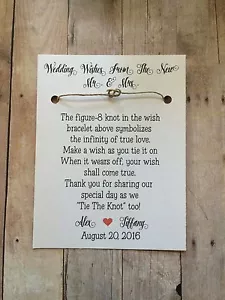 Wedding Wishes From The New
Mr. & Mrs.
The figure-8 knot in the wish
bracelet above symbolizes
the infinity of true love.
Make a wish as you tie it on
When it wears off, your wish
shall come true.
Thank you for sharing our
special day as we
"Tie The Knot" too!
Alex ♥ Tiffany
August 20, 2016